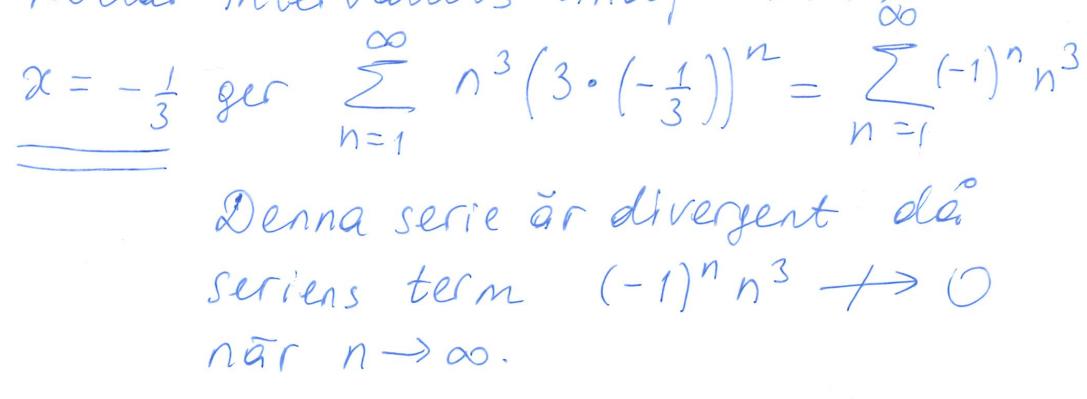 x = -1/3 ger ∞∑n=1 n³(3·(-1/3))ⁿ = ∞∑n=1 (-1)ⁿ n³
Denna serie är divergent då
seriens term (-1)ⁿ n³ ↛ 0
när n → ∞.